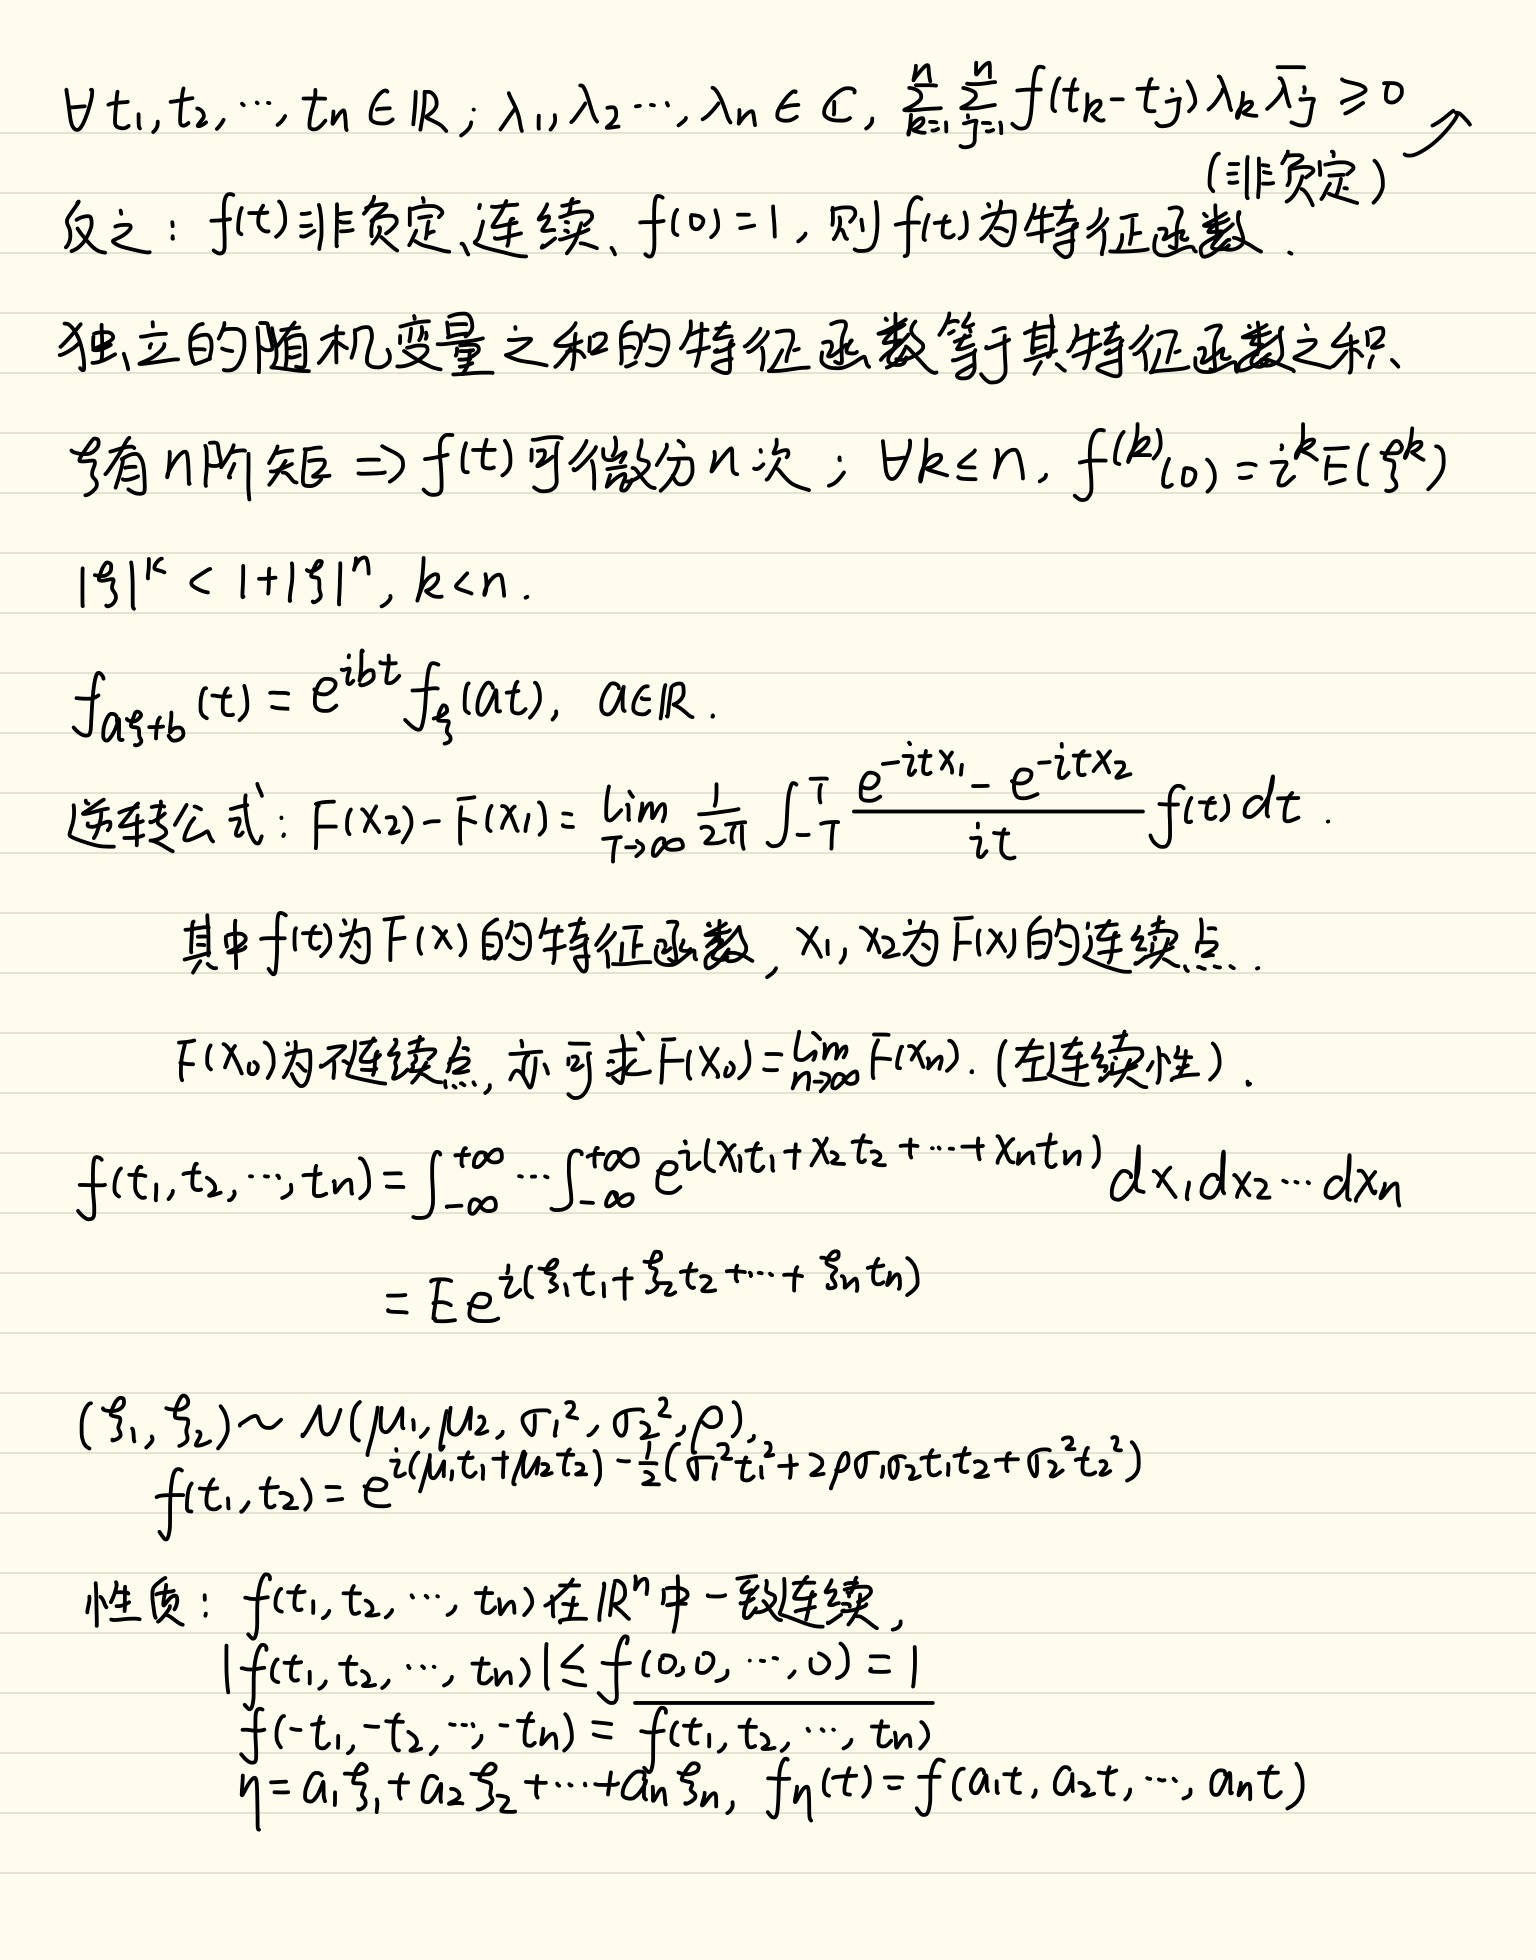 ∀t₁, t₂, ⋯, tₙ ∈ ℝ; λ₁, λ₂ ⋯, λₙ ∈ ℂ, ∑_{k=1}^{n} ∑_{j=1}^{n} f(t_k - t_j) λ_k \overline{λ_j} ⩾ 0
(非负定)
反之: f(t)非负定、连续、f(0) = 1, 则f(t)为特征函数.
独立的随机变量之和的特征函数等于其特征函数之积、
ξ有n阶矩 => f(t)可微分n次; ∀k ≤ n, f^{(k)}(0) = i^k E(ξ^k)
|ξ|^k < 1 + |ξ|^n, k < n.
f_{aξ+b}(t) = e^{ibt} f_ξ(at), a∈ℝ.
逆转公式: F(x₂) - F(x₁) = lim_{T→∞} \frac{1}{2π} ∫_{-T}^{T} \frac{e^{-itx₁} - e^{-itx₂}}{it} f(t) dt.
其中f(t)为F(x)的特征函数, x₁, x₂为F(x)的连续点.
F(x₀)为不连续点, 亦可求F(x₀) = lim_{n→∞} F(xₙ). (左连续性).
f(t₁, t₂, ⋯, tₙ) = ∫_{-∞}^{+∞} ⋯ ∫_{-∞}^{+∞} e^{i(x₁t₁ + x₂t₂ + ⋯ + xₙtₙ)} dx₁dx₂⋯dxₙ
= E e^{i(ξ₁t₁ + ξ₂t₂ + ⋯ + ξₙtₙ)}
(ξ₁, ξ₂) ~ N(μ₁, μ₂, σ₁², σ₂², ρ),
f(t₁, t₂) = e^{i(μ₁t₁ + μ₂t₂) - \frac{1}{2}(σ₁²t₁² + 2ρσ₁σ₂t₁t₂ + σ₂²t₂²)}
性质: f(t₁, t₂, ⋯, tₙ)在ℝⁿ中一致连续,
|f(t₁, t₂, ⋯, tₙ)| ≤ f(0, 0, ⋯, 0) = 1
f(-t₁, -t₂, ⋯, -tₙ) = \overline{f(t₁, t₂, ⋯, tₙ)}
η = a₁ξ₁ + a₂ξ₂ + ⋯ + aₙξₙ, f_η(t) = f(a₁t, a₂t, ⋯, aₙt)